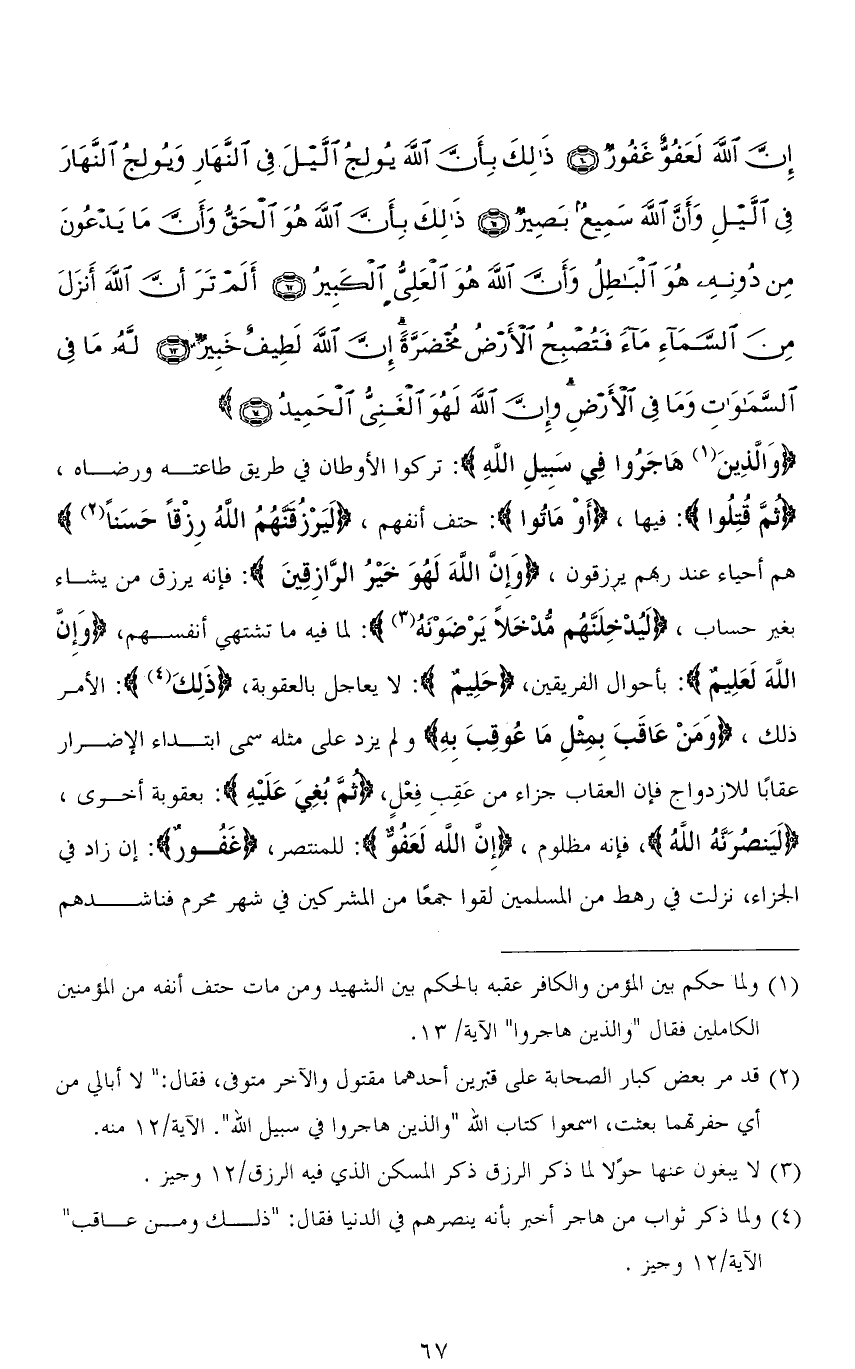 إِنَّ ٱللَّهَ لَعَفُوٌّ غَفُورٌ ۝٦٠ ذَٰلِكَ بِأَنَّ ٱللَّهَ يُولِجُ ٱلَّيْلَ فِى ٱلنَّهَارِ وَيُولِجُ ٱلنَّهَارَ
فِى ٱلَّيْلِ وَأَنَّ ٱللَّهَ سَمِيعٌۢ بَصِيرٌ ۝٦١ ذَٰلِكَ بِأَنَّ ٱللَّهَ هُوَ ٱلْحَقُّ وَأَنَّ مَا يَدْعُونَ
مِن دُونِهِۦ هُوَ ٱلْبَٰطِلُ وَأَنَّ ٱللَّهَ هُوَ ٱلْعَلِىُّ ٱلْكَبِيرُ ۝٦٢ أَلَمْ تَرَ أَنَّ ٱللَّهَ أَنزَلَ
مِنَ ٱلسَّمَآءِ مَآءً فَتُصْبِحُ ٱلْأَرْضُ مُخْضَرَّةً ۗ إِنَّ ٱللَّهَ لَطِيفٌ خَبِيرٌ ۝٦٣ لَّهُۥ مَا فِى
ٱلسَّمَٰوَٰتِ وَمَا فِى ٱلْأَرْضِ ۗ وَإِنَّ ٱللَّهَ لَهُوَ ٱلْغَنِىُّ ٱلْحَمِيدُ ۝٦٤ ﴾
﴿وَالَّذِينَ(١) هَاجَرُوا فِي سَبِيلِ اللَّهِ ﴾: تركوا الأوطان في طريق طاعته ورضاه ،
﴿ثُمَّ قُتِلُوا ﴾: فيها ، ﴿أَوْ مَاتُوا ﴾: حتف أنفهم ، ﴿لَيَرْزُقَنَّهُمُ اللَّهُ رِزْقاً حَسَناً(٢) ﴾
هم أحياء عند ربهم يرزقون ، ﴿وَإِنَّ اللَّهَ لَهُوَ خَيْرُ الرَّازِقِينَ ﴾: فإنه يرزق من يشاء
بغير حساب ، ﴿لَيُدْخِلَنَّهُم مُّدْخَلاً يَرْضَوْنَهُ(٣) ﴾: لما فيه ما تشتهي أنفسهم، ﴿وَإِنَّ
اللَّهَ لَعَلِيمٌ ﴾: بأحوال الفريقين، ﴿حَلِيمٌ ﴾: لا يعاجل بالعقوبة، ﴿ذَلِكَ(٤) ﴾: الأمر
ذلك ، ﴿وَمَنْ عَاقَبَ بِمِثْلِ مَا عُوقِبَ بِهِ﴾ ولم يزد على مثله سمى ابتداء الإضرار
عقابًا للازدواج فإن العقاب جزاء من عَقِبِ فِعْلٍ، ﴿ثُمَّ بُغِيَ عَلَيْهِ ﴾: بعقوبة أخرى ،
﴿لَيَنصُرَنَّهُ اللَّهُ ﴾، فإنه مظلوم ، ﴿إِنَّ الله لَعَفُوٌّ ﴾: للمنتصر، ﴿غَفُورٌ﴾: إن زاد في
الجزاء، نزلت في رهط من المسلمين لقوا جمعًا من المشركين في شهر محرم فناشدهم
(١) ولما حكم بين المؤمن والكافر عقبه بالحكم بين الشهيد ومن مات حتف أنفه من المؤمنين
الكاملين فقال "والذين هاجروا" الآية/ ١٣.
(٢) قد مر بعض كبار الصحابة على قبرين أحدهما مقتول والآخر متوفى، فقال:" لا أبالي من
أي حفرتهما بعثت، اسمعوا كتاب الله "والذين هاجروا في سبيل الله". الآية/١٢ منه.
(٣) لا يبغون عنها حوًلا لما ذكر الرزق ذكر المسكن الذي فيه الرزق/١٢ وجيز .
(٤) ولما ذكر ثواب من هاجر أخبر بأنه ينصرهم في الدنيا فقال: "ذلك ومن عاقب"
الآية/١٢ وجيز .
٦٧